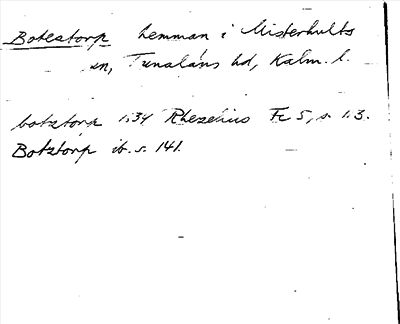 Botestorp hemman i Misterhults
sn, Tunaläns hd, Kalm. l.
botztorp 1634 Rhezelius Fc 5, s. 13.
Botztorp ib. s. 141.